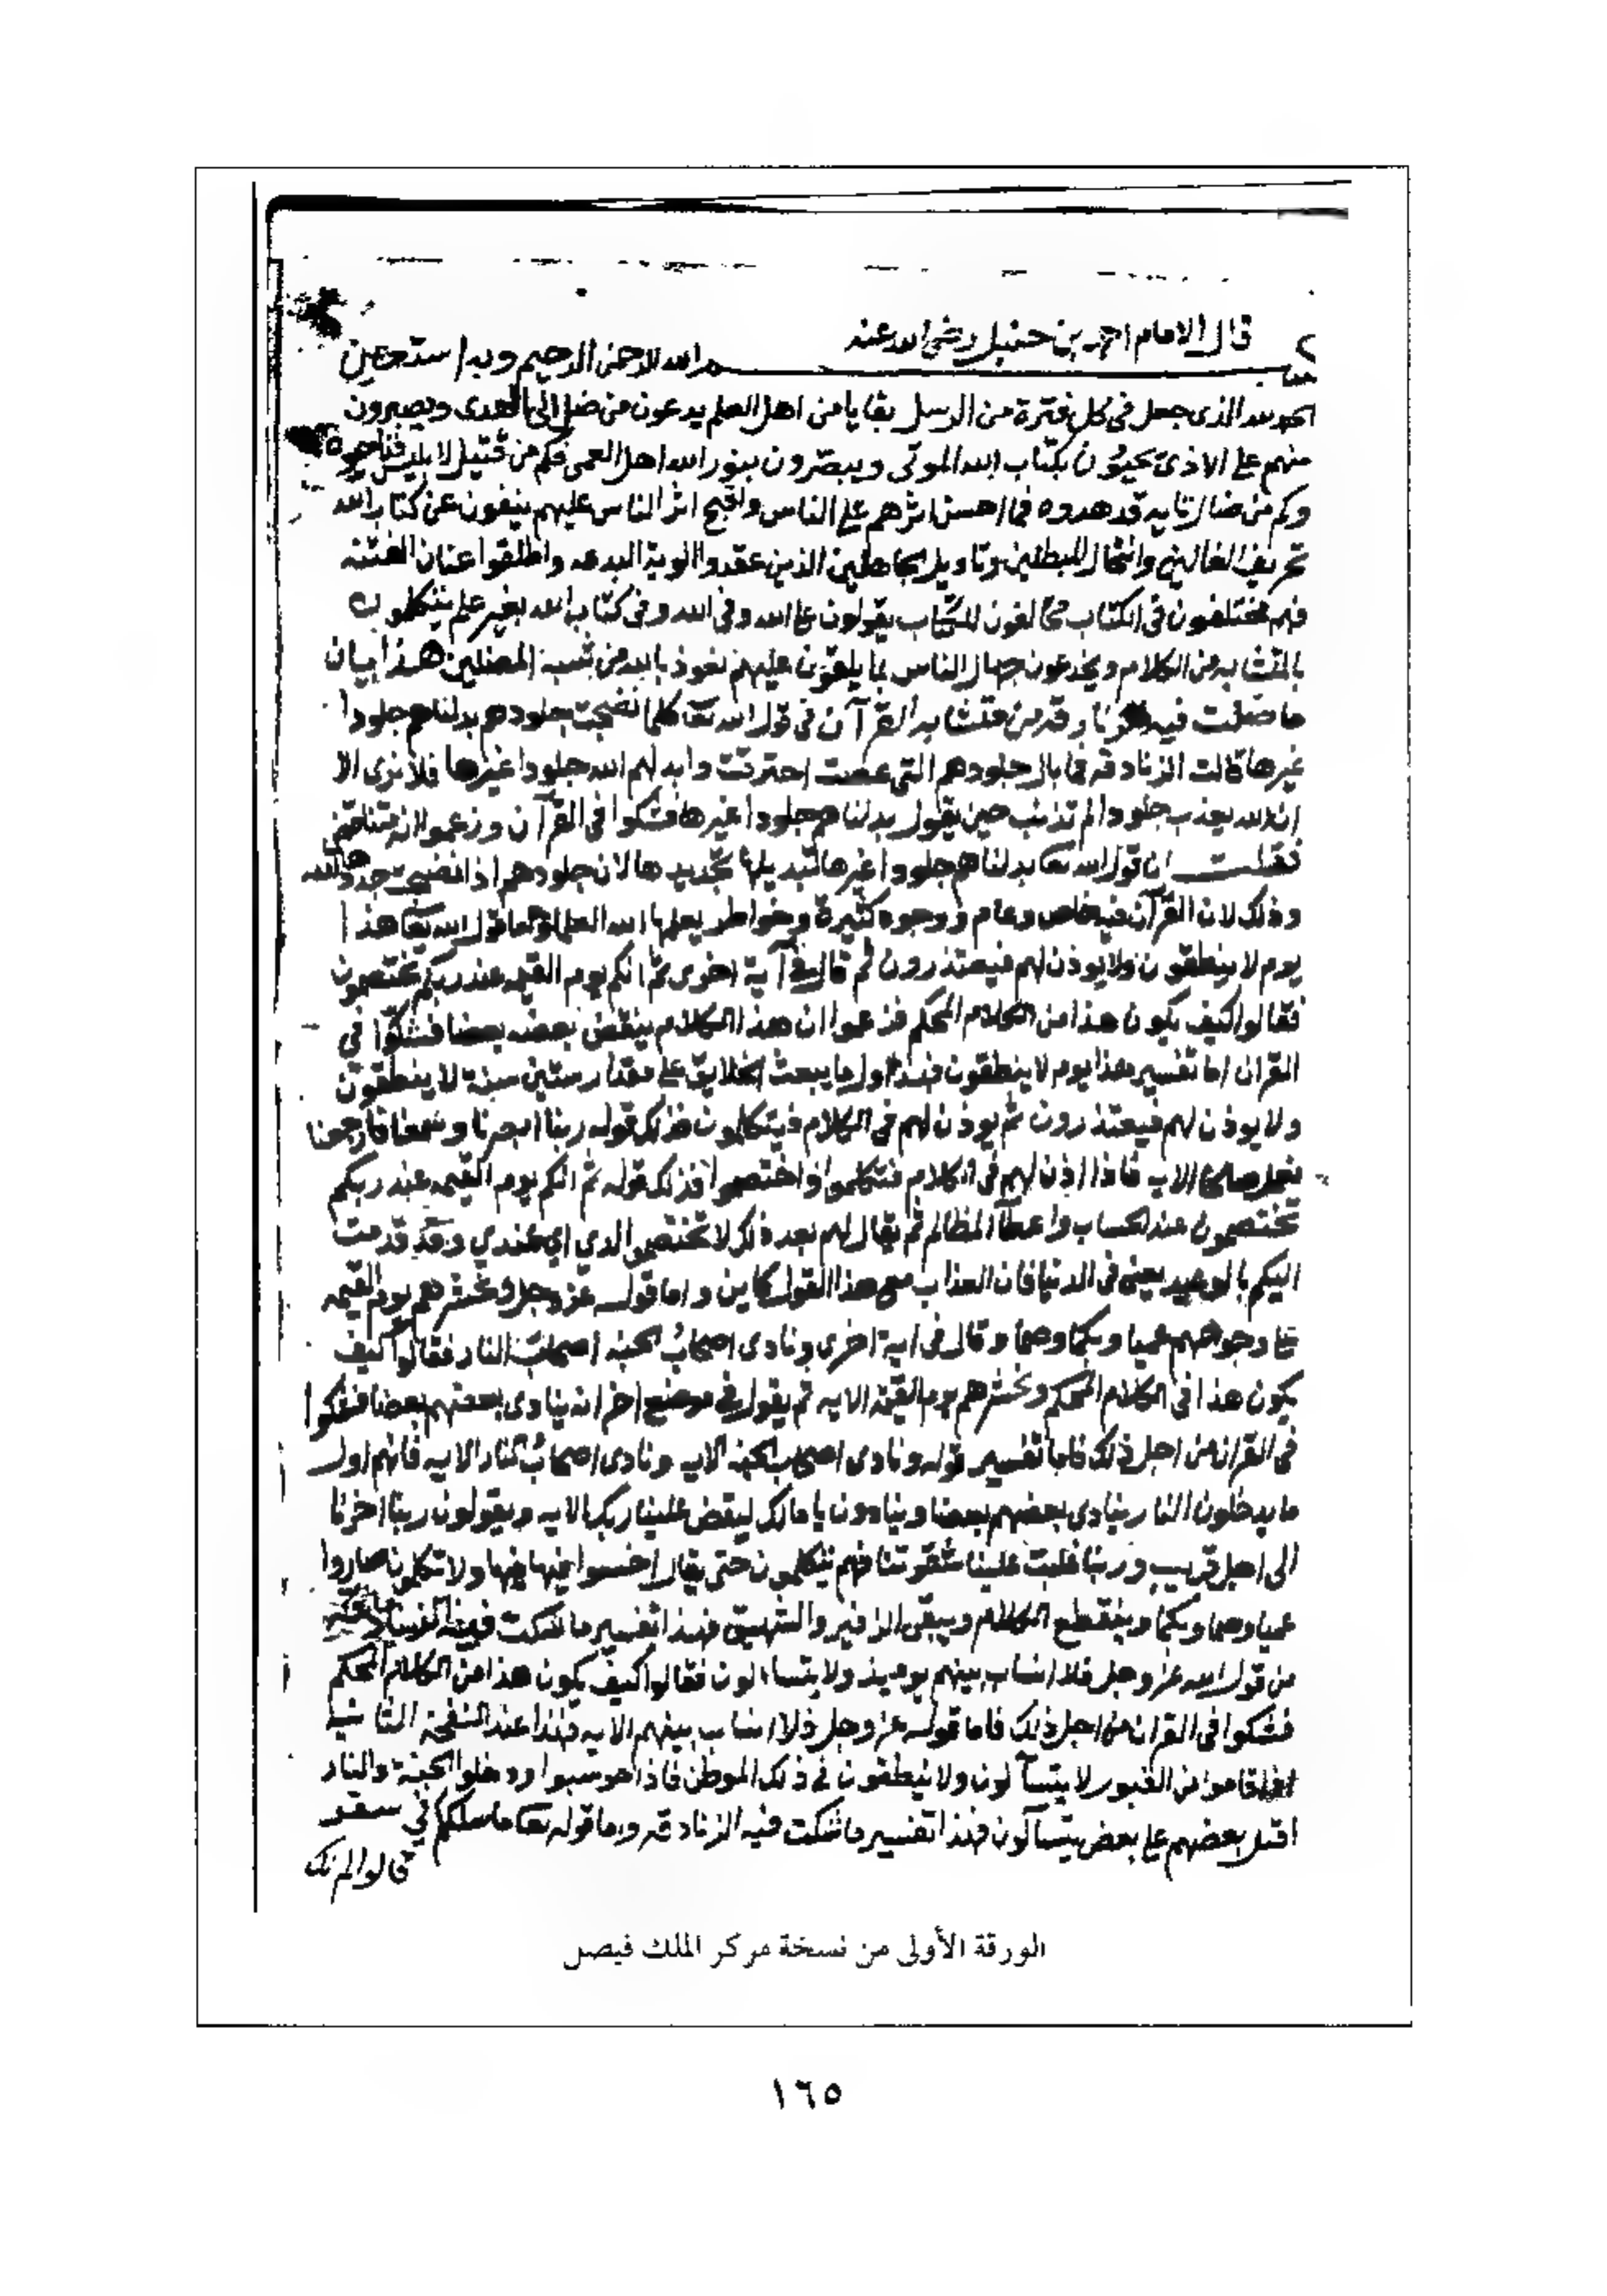 قال الامام احمد بن حنبل رضي الله عنه
بسم الله الرحمن الرحيم وبه استعين
الحمد لله الذى جعل فى كل فترة من الرسل بقايا من اهل العلم يدعون من ضل الى الهدى ويصبرون
منهم على الاذى يحيون بكتاب الله الموتى ويبصرون بنور الله اهل العمى فكم من قتيل لابليس قد احيوه
وكم من ضال تايه قد هدوه فما احسن اثرهم على الناس واقبح اثر الناس عليهم ينفون عن كتاب الله
تحريف الغالين وانتحال المبطلين وتاويل الجاهلين الذين عقدوا الوية البدعه واطلقوا عنان الفتنه
فهم مختلفون فى الكتاب مخالفون للكتاب يقولون على الله وفى الله وفى كتاب الله بغير علم يتكلمون
بالمتشابه من الكلام ويخدعون جهال الناس بما يلقون عليهم نعوذ بالله من شبه المضلين هذا بيان
ما ضلت فيه الزنادقه من متشابه القرآن فى قول الله تعا كلما نضجت جلودهم بدلناهم جلودا
غيرها قالت الزنادقه فما بال جلودهم التى عصت احترقت وابدلهم الله جلودا غيرها فلا نرى الا
ان الله يعذب جلودا لم تذنب حين يقول بدلناهم جلودا غيرها فشكوا فى القرآن وزعموا انه متناقض
فقلت ان قول الله تعا بدلناهم جلودا غيرها تبديلها تجديدها لان جلودهم اذا نضجت جددها الله
وذلك لان القرآن فيه خاص وعام ووجوه كثيرة وخواطر يعلمها الله العلما واما قول الله تعا هذا
يوم لا ينطقون ولا يوذن لهم فيعتذرون ثم قال فى آية اخرى ثم انكم يوم القيمه عند ربكم تختصمون
فقالوا كيف يكون هذا من الكلام المحكم فزعموا ان هذا الكلام ينقض بعضه بعضا فشكوا فى
القران اما تفسير هذا يوم لا ينطقون فهذا اول ما يبعث الخلايق على مقدار ستين سنة لا ينطقون
ولا يوذن لهم فيعتذرون ثم يوذن لهم فى الكلام فيتكلمون فذلك قوله ربنا ابصرنا وسمعنا فارجعنا
نعمل صالحا الايه فاذا اذن لهم فى الكلام فتكلموا واختصموا فذلك قوله ثم انكم يوم القيمه عند ربكم
تختصمون عند الحساب واعطآ المظالم ثم يقال لهم بعد ذلك لا تختصموا لدي اي عندي وقد قدمت
اليكم بالوعيد يعنى فى الدنيا فان العذاب مع هذا القول كاين واما قوله عز وجل ونحشرهم يوم القيمه
على وجوههم عميا وبكما وصما وقال فى اية اخرى ونادى اصحاب الجنه اصحاب النار فقالوا كيف
يكون هذا فى الكلام المحكم ونحشرهم يوم القيمة الايه ثم يقول فى موضع اخر انه ينادى بعضهم بعضا فشكوا
فى القران من اجل ذلك فاما تفسير قوله ونادى اصحاب الجنه الايه ونادى اصحاب النار الايه فانهم اول
ما يدخلون النار ينادى بعضهم بعضا وينادون يا مالك ليقض علينا ربك الايه ويقولون ربنا اخرنا
الى اجل قريب وربنا غلبت علينا شقوتنا فهم يتكلمون حتى يقال اخسوا فيها ولا تكلمون صاروا
عميا وصما وبكما وينقطع الكلام ويبقى الزفير والشهيق فهذا تفسير ما شكت فيه الزنادقه
من قول الله عز وجل فلا انساب بينهم يوميذ ولا يتسا لون فقالوا كيف يكون هذا من الكلام المحكم
فشكوا فى القران من اجل ذلك فاما قوله عز وجل فلا انساب بينهم الايه فهذا عند النفخة الثانيه
اذا قاموا من القبور لا يتسآلون ولا ينطقون فى ذلك الموطن فاذا حوسبوا ودخلوا الجنة والنار
اقبل بعضهم على بعض يتسآلون فهذا تفسير ما شكت فيه الزنادقه واما قوله تعا ما سلككم فى سقر
قالوا لم نك
الورقة الأولى من نسخة مركز الملك فيصل
١٦٥